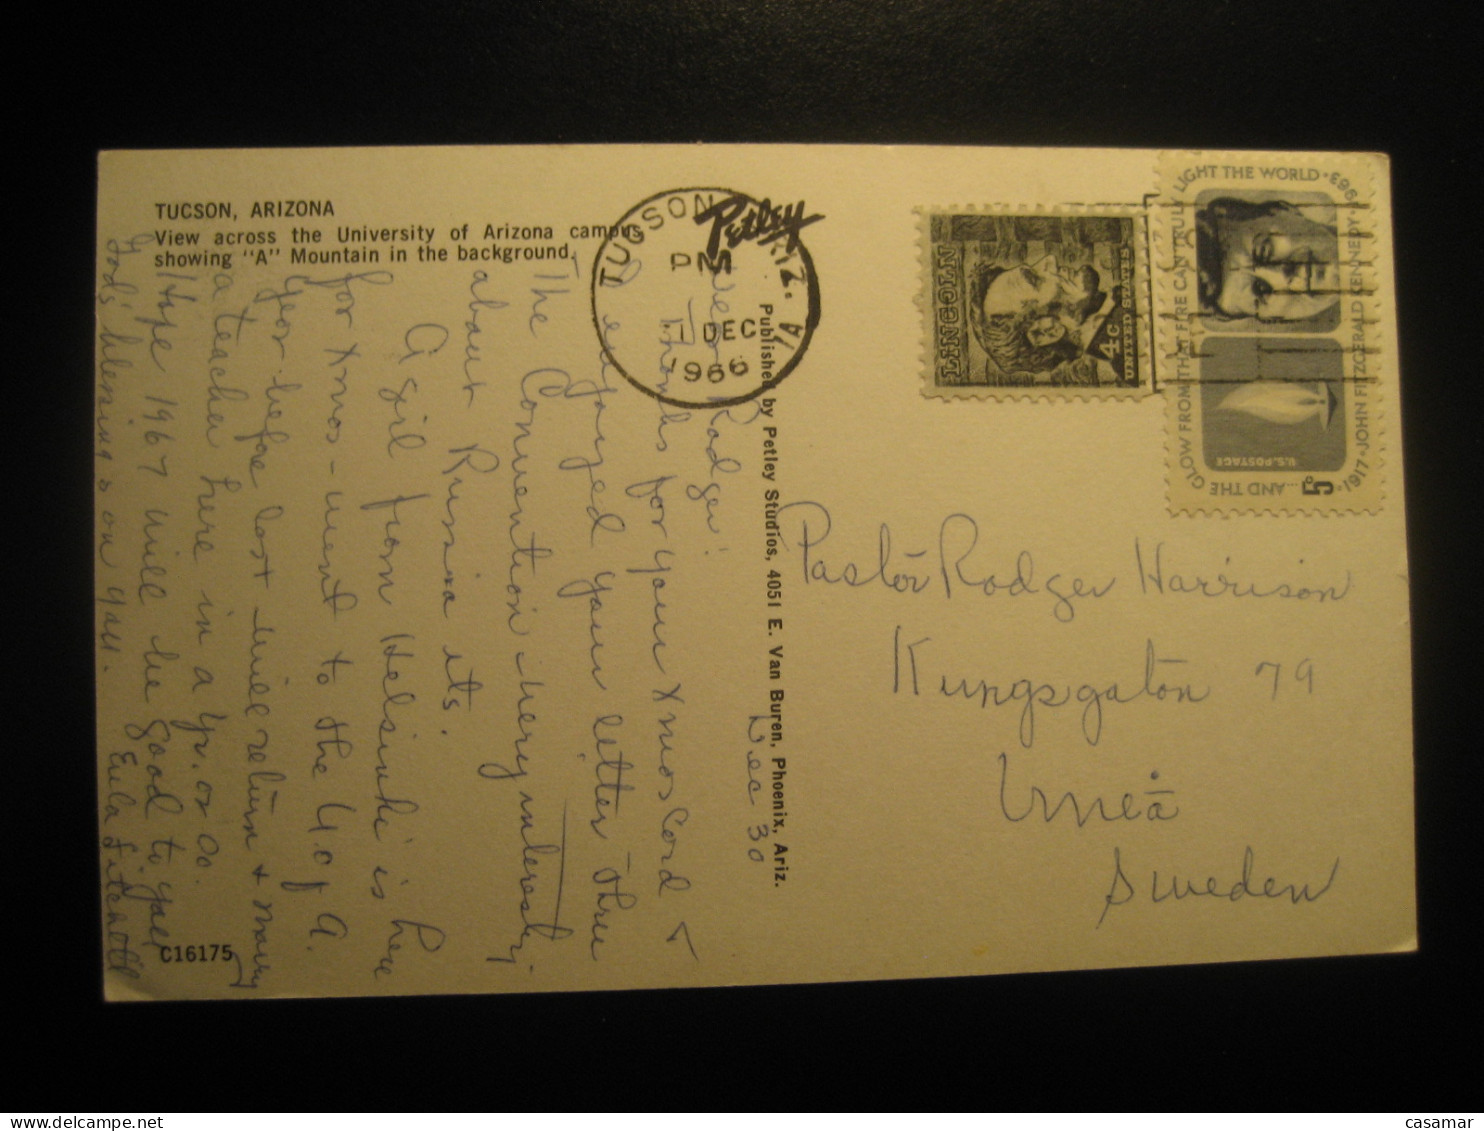 TUCSON, ARIZONA
View across the University of Arizona campus
showing "A" Mountain in the background.
Petley
TUCSON ARIZ.
PM
DEC
1966
LINCOLN
4c
UNITED STATES
...AND THE GLOW FROM THAT FIRE CAN TRULY LIGHT THE WORLD
1917 · JOHN FITZGERALD KENNEDY · 1963
U.S. POSTAGE
5c
Published by Petley Studios, 4051 E. Van Buren, Phoenix, Ariz.
Dec 30
Dear Rodger:
Thanks for your Xmas Card &
I enjoyed your letter thru
The Convention - very interesting
about Russia its.
A girl from Helsinki is here
for Xmas - went to the U. of A.
year before last will return & marry
a teacher here in a yr. or so.
Hope 1967 will be good to you.
God's blessings on you.
Eula
Pastor Rodger Harrison
Kungsgatan 79
Umeå
Sweden
C16175
casamar